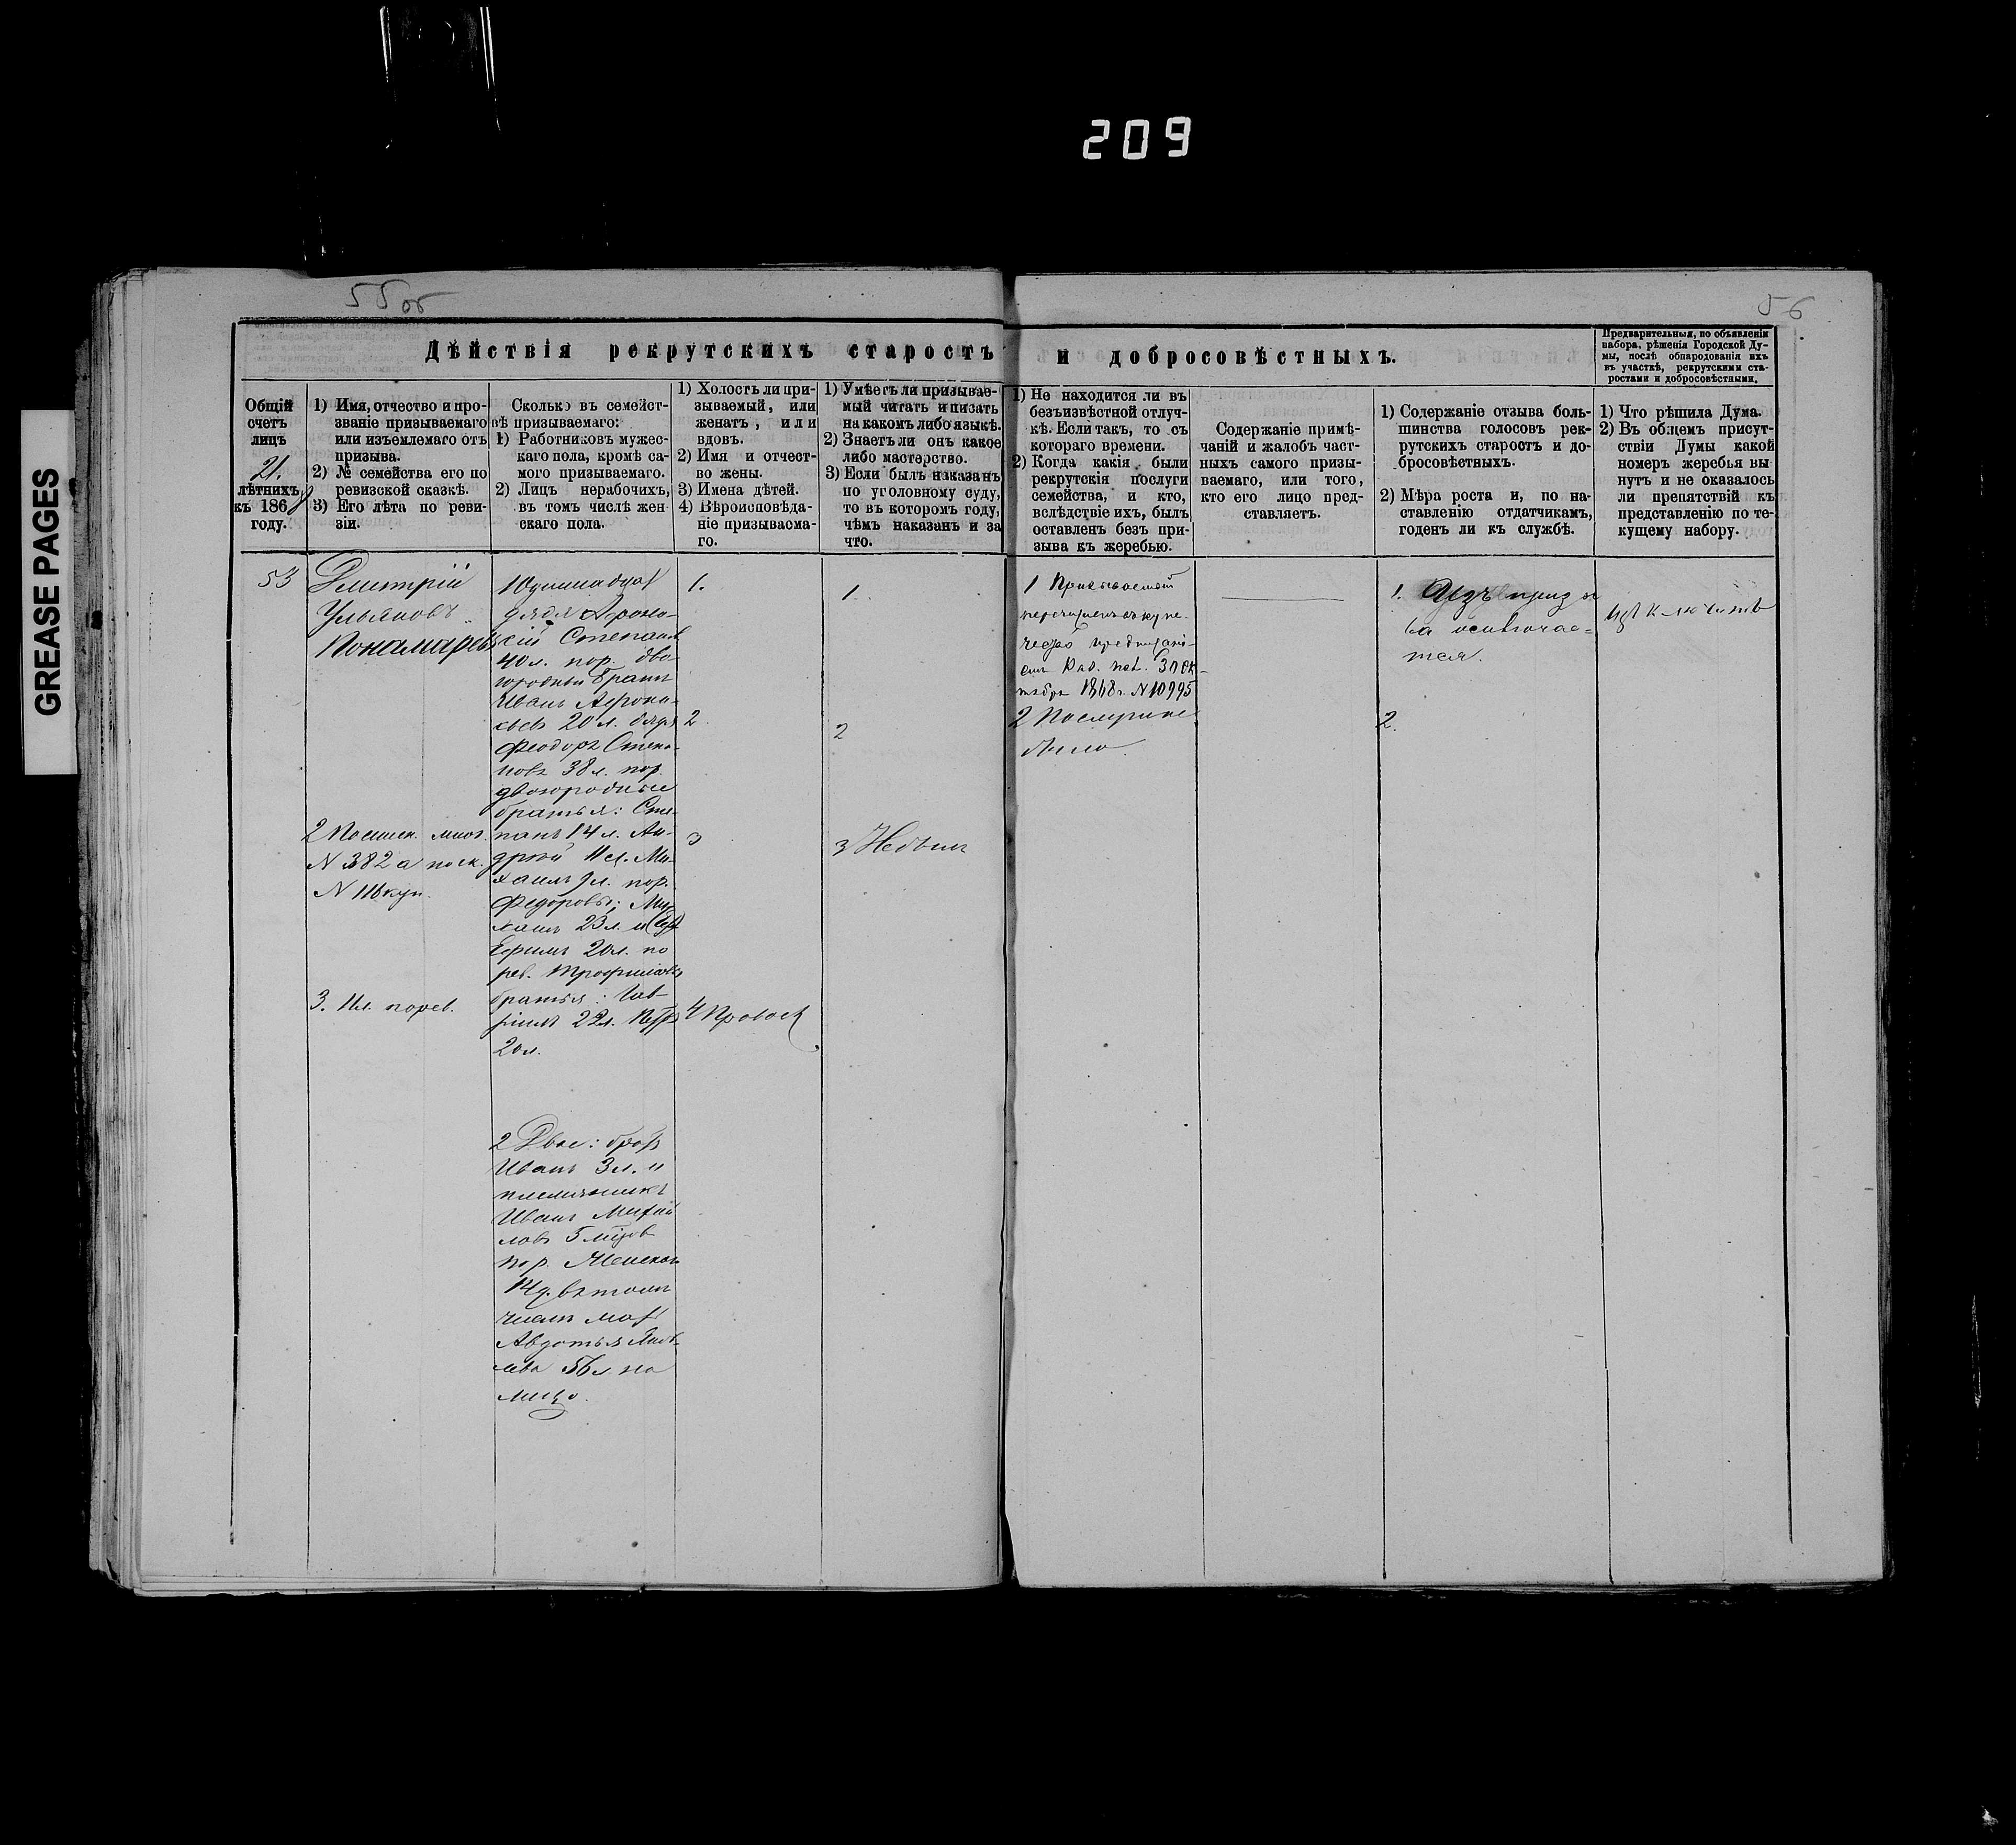 209
GREASE PAGES
55 об
56
Дѣйствія рекрутскихъ старостъ и добросовѣстныхъ.
Предварительныя, по объявленіи
набора, рѣшенія Городской Ду-
мы, послѣ обнародованія ихъ
въ участкѣ, рекрутскими ста-
ростами и добросовѣстными.
Общій
счетъ
лицъ
21.
лѣтнихъ
къ 1868
году.
1) Имя, отчество и про-
званіе призываемаго
или изъемлемаго отъ
призыва.
2) № семейства его по
ревизской сказкѣ.
3) Его лѣта по реви-
зіи.
Сколько въ семейст-
вѣ призываемаго:
1) Работниковъ мужес-
каго пола, кромѣ са-
мого призываемаго.
2) Лицъ нерабочихъ,
въ томъ числѣ жен
скаго пола.
1) Холостъ ли при-
зываемый, или
женатъ, или
вдовъ.
2) Имя и отчест-
во жены.
3) Имена дѣтей.
4) Вѣроисповѣда-
ніе призываема-
го.
1) Умѣетъ ли призывае-
мый читать и писать
на какомъ либо языкѣ.
2) Знаетъ ли онъ какое
либо мастерство.
3) Если былъ наказанъ
по уголовному суду,
то въ которомъ году,
чѣмъ наказанъ и за
что.
1) Не находится ли въ
безъизвѣстной отлуч-
кѣ. Если такъ, то съ
котораго времени.
2) Когда какія были
рекрутскія послуги
семейства, и кто,
вслѣдствіе ихъ, былъ
оставленъ безъ при-
зыва къ жеребью.
Содержаніе примѣ-
чаній и жалобъ част-
ныхъ самого призы-
ваемаго, или того,
кто его лицо пред-
ставляетъ.
1) Содержаніе отзыва боль-
шинства голосовъ рек-
рутскихъ старостъ и до-
бросовѣстныхъ.
2) Мѣра роста и, по на-
ставленію отдатчикамъ,
годенъ ли къ службѣ.
1) Что рѣшила Дума.
2) Въ общемъ присут-
ствіи Думы какой
номеръ жеребья вы
нутъ и не оказалось
ли препятствій къ
представленію по те-
кущему набору.
53
Дмитрій
Ульяновъ
Понамаревъ
2 N 382 а по ск.
N 118 куп.
3. 11 л. по рев.
дядя Афона-
сій Степановъ
40 л. пор. дво-
юродный братъ
Иванъ Афона-
сьевъ 20 л. дядя
Феодоръ Степа-
новъ 38 л. пор.
двоюродные
братья: Сте-
панъ 14 л. Ан-
дрей 11 л. Ми-
хаилъ 9 л. пор.
Федоровы; Ми-
хаилъ 23 л. и
Ефимъ 20 л. по
рев. Трофимовы
братья: Гав-
ріилъ 22 л. Петръ
20 л.
2 Двое: братъ
Иванъ 3 л. и
племянникъ
Иванъ Михай
ловъ 5 мѣсяцовъ
пор. Женскаго
14 д. въ томъ
числѣ мать
Авдотья
56 л. на
лицо.
1.
2.
3
4 Правосл
1.
2
3 Небылъ
1 Призываемый
перечисленъ въ купе-
чество предписані-
емъ Каз. пал. 31 Ок-
тября 1868 г. N 10995
2 Послуги не
было.
1. Изъ призы
ва исключае-
тся.
2.
Исключить